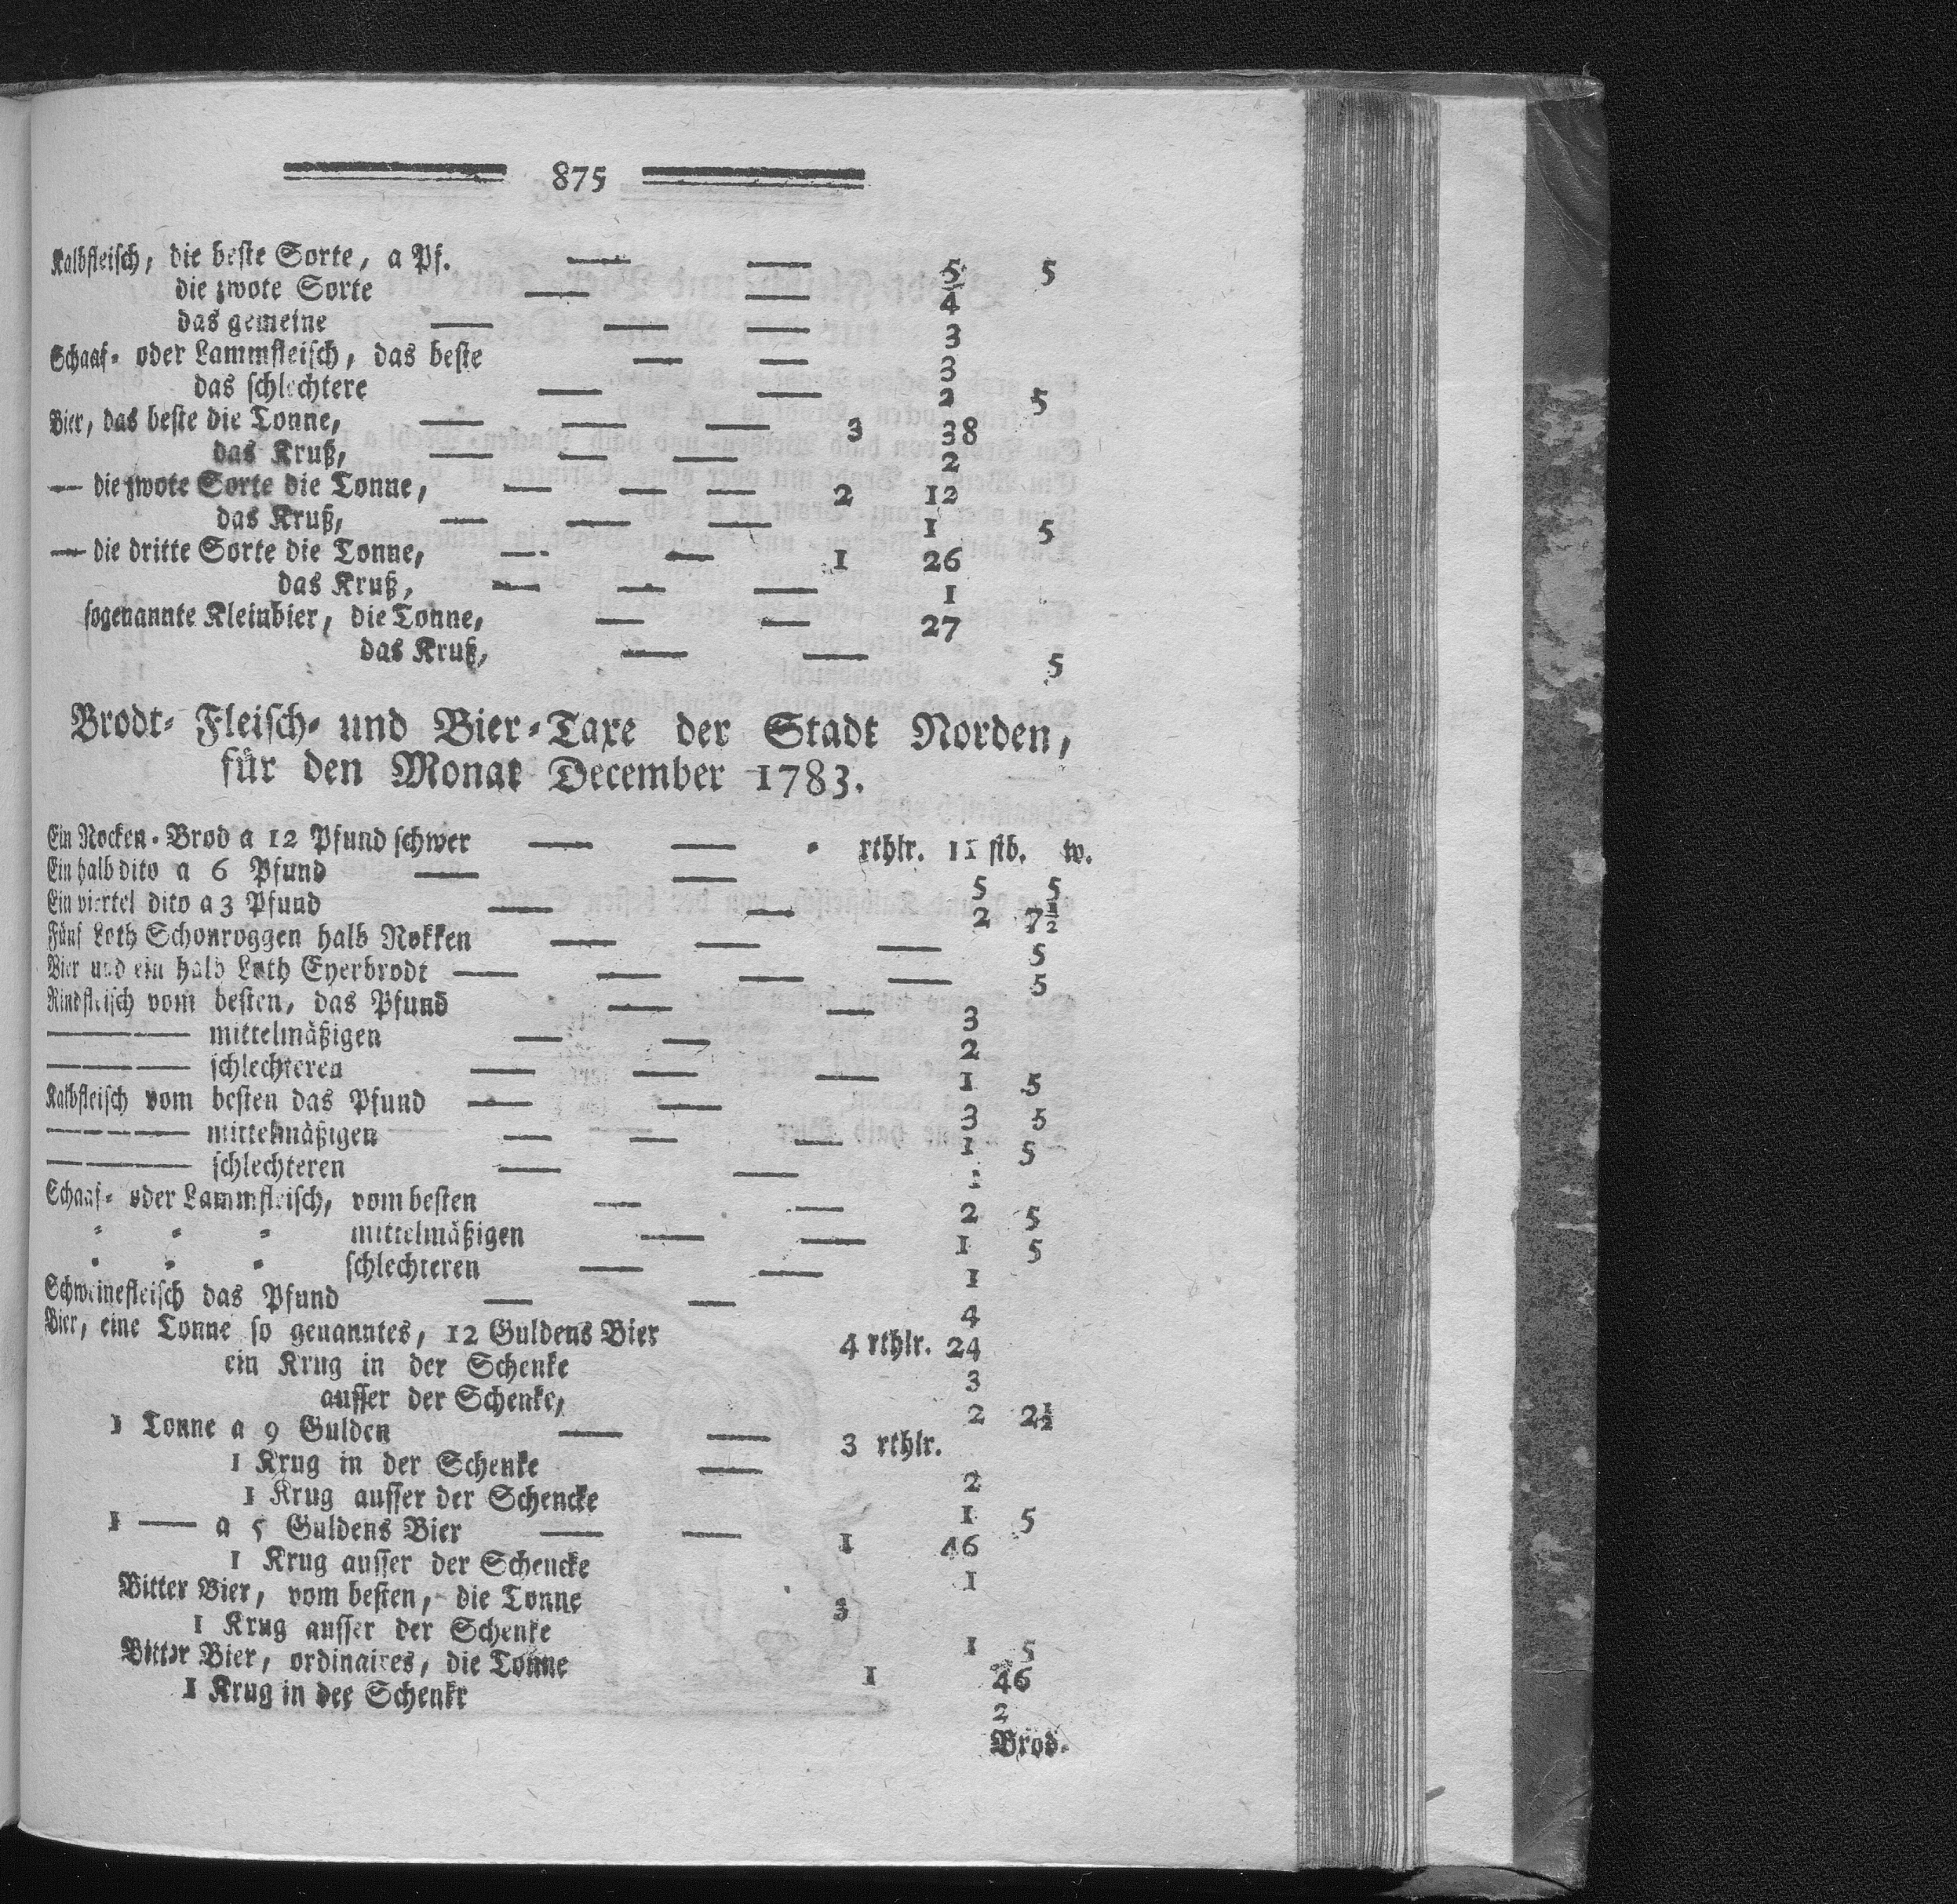 875
Kalbfleisch, die beste Sorte, a Pf. — — 5 5
die zwote Sorte — — 4
das gemeine — — — 3
Schaaf- oder Lammfleisch, das beste — — 3
das schlechtere — — 2 5
Bier, das beste die Tonne, — — — 3 38
das Kruß, — — — 2
— die zwote Sorte die Tonne, — — — 2 12
das Kruß, — — — 1 5
— die dritte Sorte die Tonne, — — 1 26
das Kruß, — — — 1
sogenannte Kleinbier, die Tonne, — — 27
das Kruß, — — 5
Brodt- Fleisch- und Bier-Taxe der Stadt Norden,
für den Monat December 1783.
Ein Rocken-Brod a 12 Pfund schwer — — rthlr. 11 stb. w.
Ein halb dito a 6 Pfund — — 5 5
Ein viertel dito a 3 Pfund — — 2 7½
Fünf Loth Schonroggen halb Rokken — — — 5
Vier und ein halb Loth Eyerbrodt — — — — 5
Rindfleisch vom besten, das Pfund — — 3
———— mittelmäßigen — — 2
———— schlechteren — — — 1 5
Kalbfleisch vom besten das Pfund — — 3 5
———— mittelmäßigen — — — 1 5
———— schlechteren — — 1
Schaaf- oder Lammfleisch, vom besten — — 2 5
- - - mittelmäßigen — — 1 5
- - - schlechteren — — 1
Schweinefleisch das Pfund — — 4
Bier, eine Tonne so genanntes, 12 Guldens Bier 4 rthlr. 24
ein Krug in der Schenke 3
ausser der Schenke, 2 2½
1 Tonne a 9 Gulden — — 3 rthlr.
1 Krug in der Schenke — 2
1 Krug ausser der Schencke 1 5
1 — a 5 Guldens Bier — — 1 46
1 Krug ausser der Schencke 1
Bitter Bier, vom besten, die Tonne 3
1 Krug ausser der Schenke 1 5
Bitter Bier, ordinaires, die Tonne 1 46
1 Krug in der Schenkr 2
Brod-